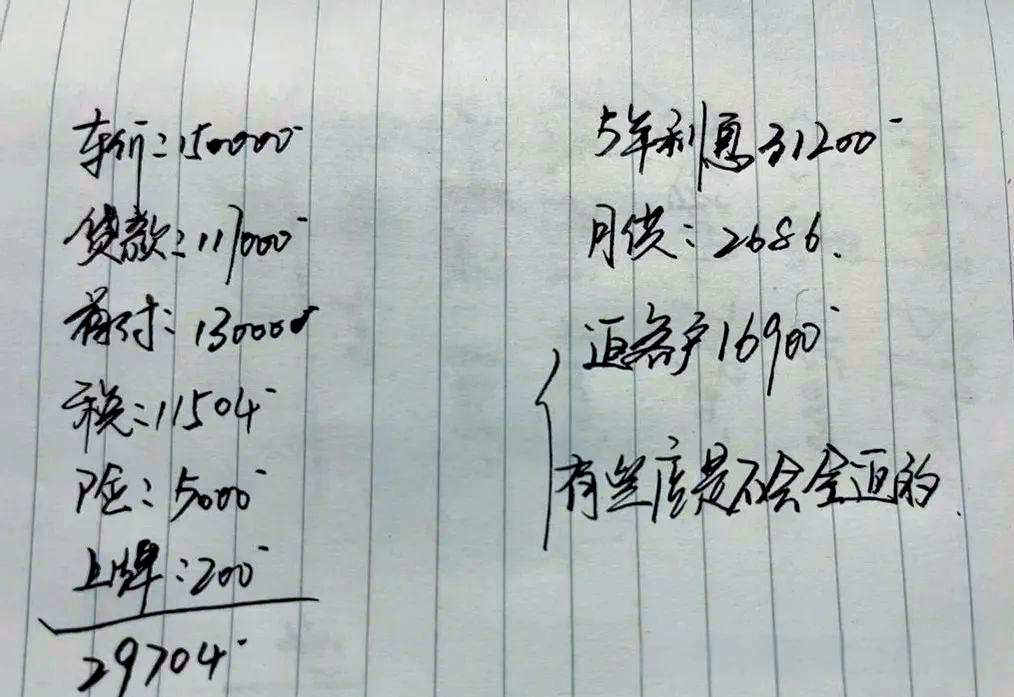 车价:150000
贷款:117000
首付:13000
税:11504
险:5000
上牌:200
29704
5年利息31200
月供:2686.
返客户16900
有些店是不会全返的.